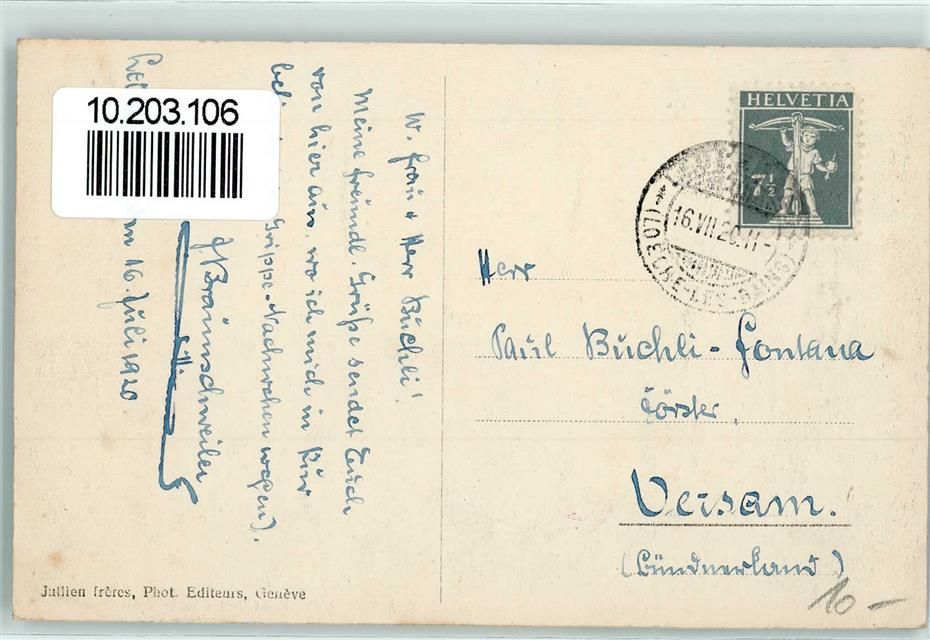 10.203.106
W. Frau & Herr Buchli!
Meine freundl. Grüße sendet Euch
von hier aus, wo ich mich in Kur
Grippe-Nachwehen wegen).
J. Braunschweiler
16. Juli 1920
HELVETIA
7½
16.VII.20.11-
(LOÈCHE-LES-BAINS)
Herr
Paul Buchli-Fontana
Förster,
Versam.
(Bündnerland)
10 –
Jullien frères, Phot. Editeurs, Genève